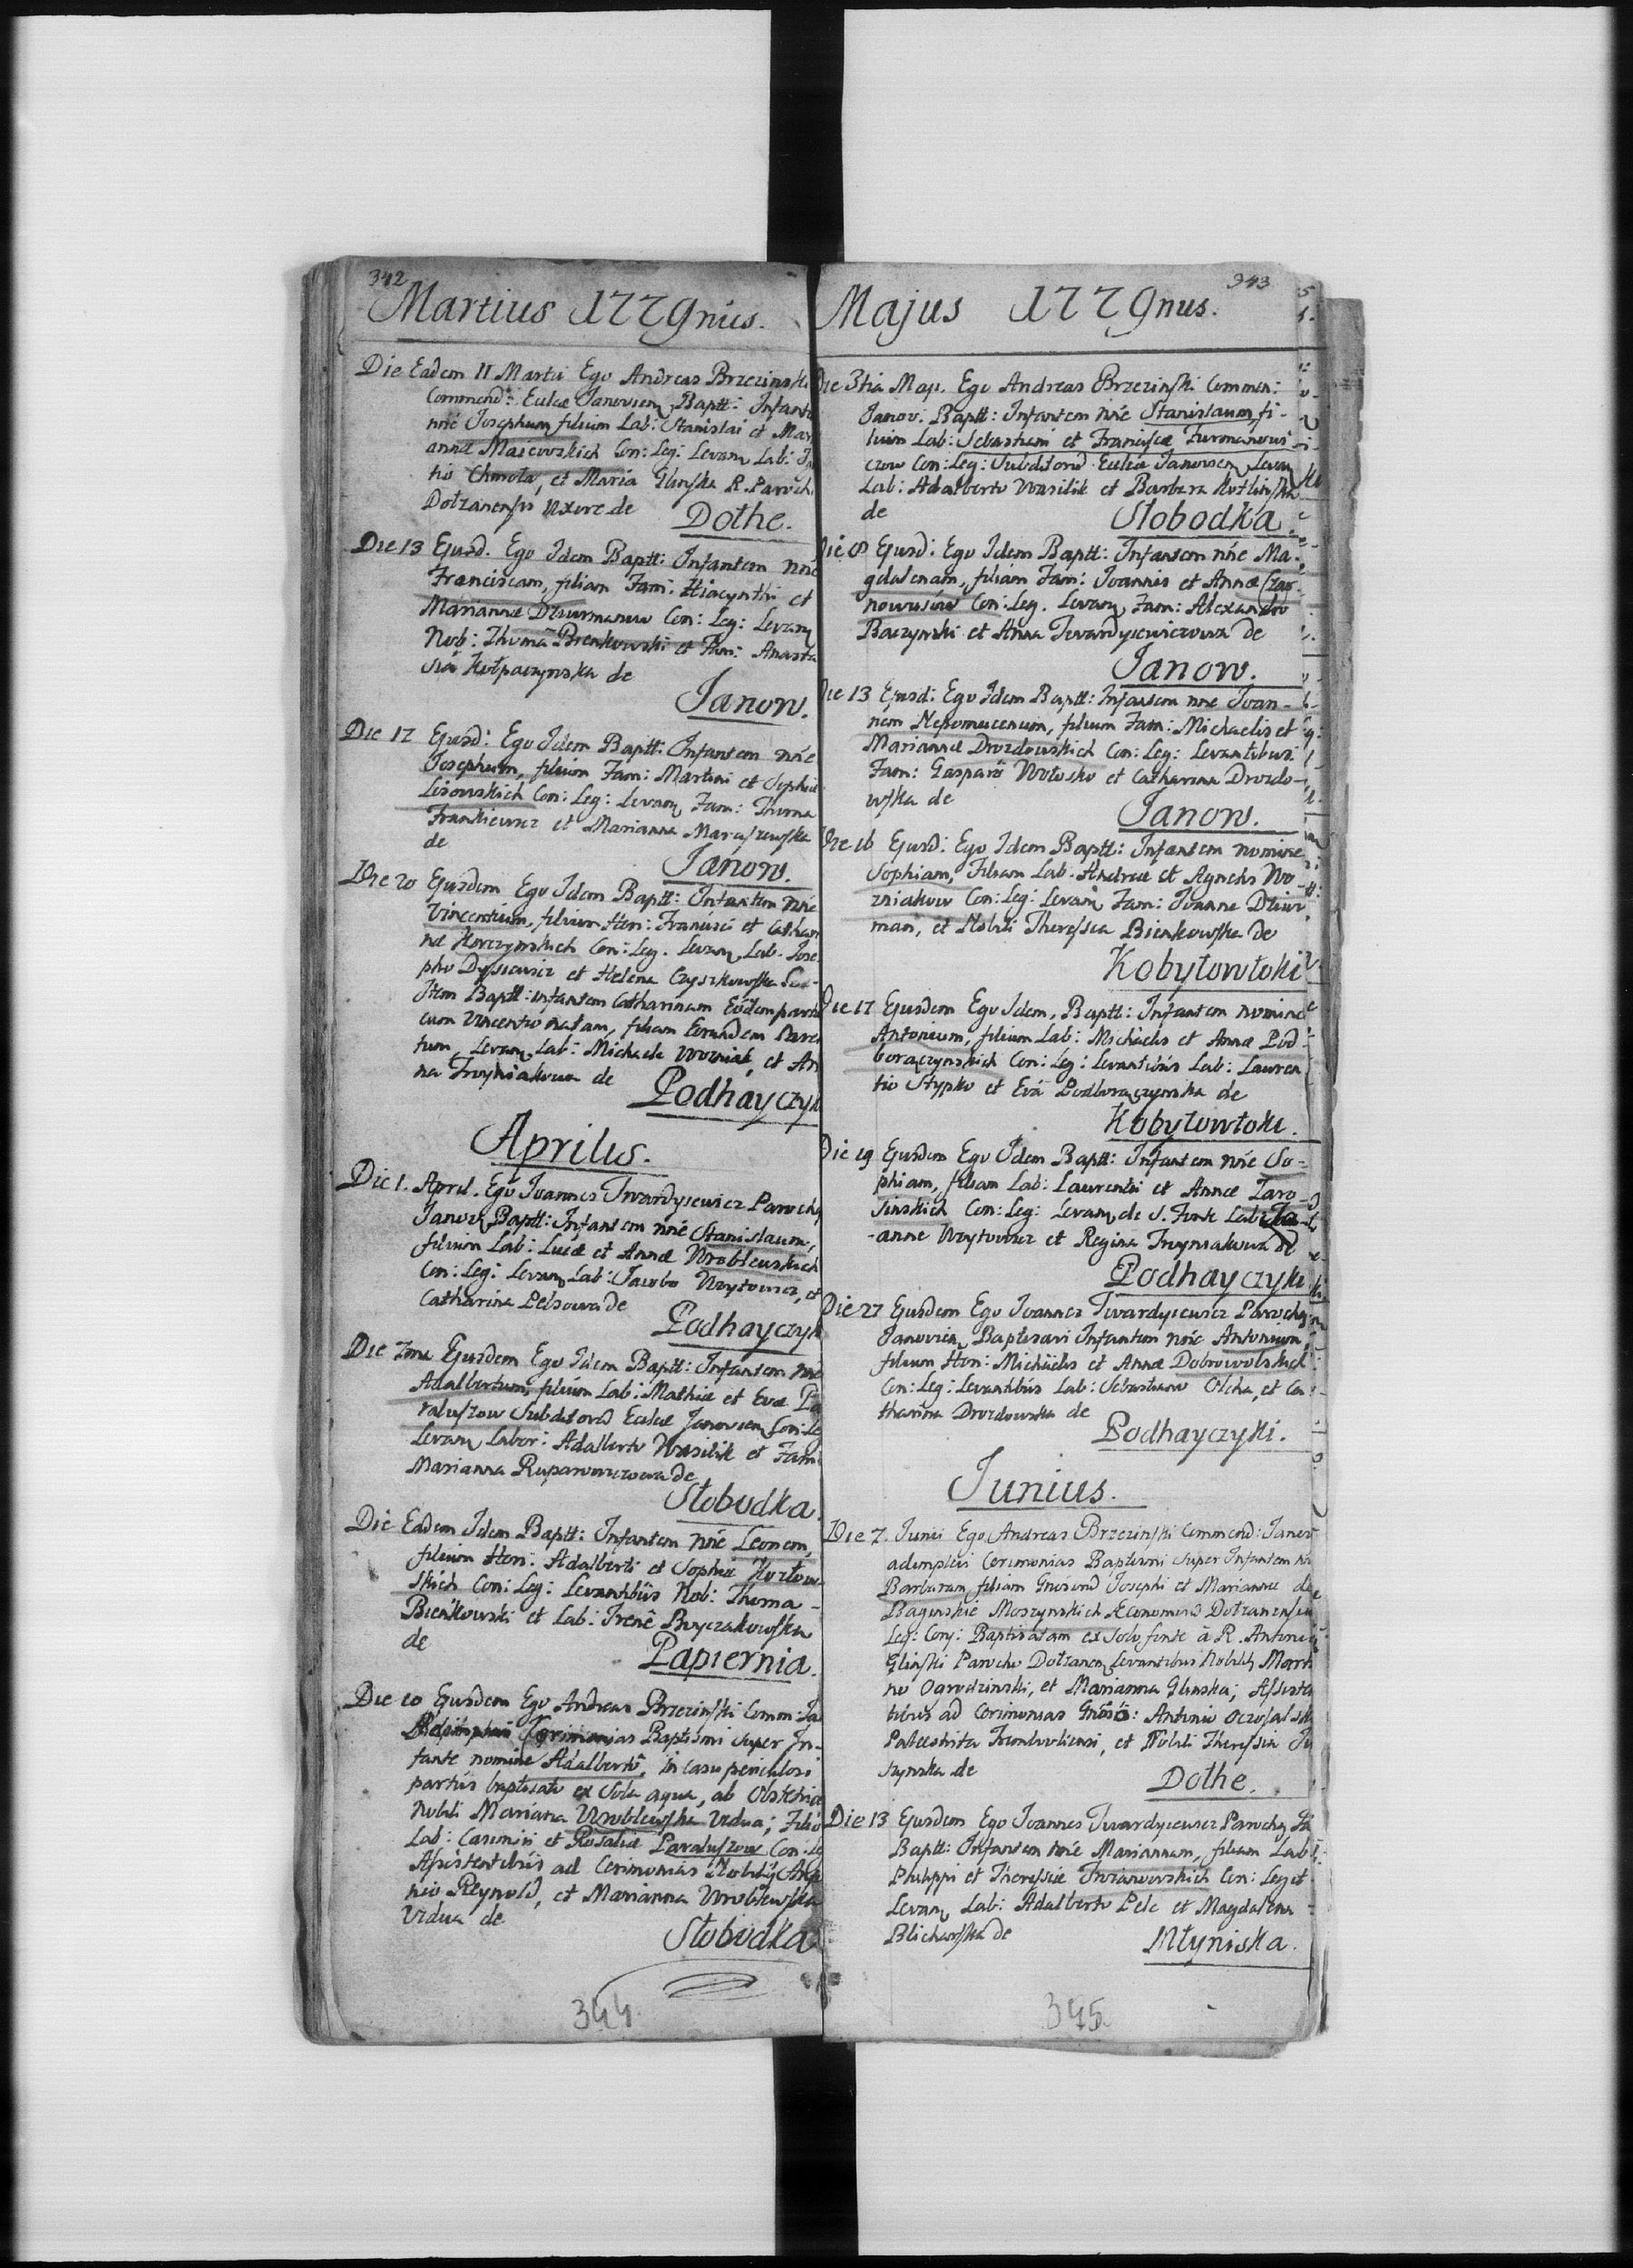 342
Martius 1779nus.
Die Eadem 11 Martii Ego Andreas Brzezinski
Commend: Eccliæ Janovien Baptt: Infantem
nnē Josephum filium Lab: Stanislai et Mari
annæ Maicowskich Con: Leg: Levan Lab:
Chmola, et Maria Glinska R. Paroch
Dołzanensis uxore de
Dołhe.
Die 13 Ejusd. Ego Idem Baptt: Infantem nnē
Franciscam, filiam Fam: Hiacynthi et
Mariannæ Dziurmanow Con: Leg: Levan
Nob: Thoma Bienkowski et Fam: Anasta
sia Kołpaczynska de
Janow.
Die 17 Ejusd: Ego Idem Baptt: Infantem nnē
Josephum, filium Fam: Martini et Sophiæ
Lisowskich Con: Leg: Levan Fam: Thoma
Frankiewicz et Marianna Maruszewska
de
Janow.
Die 20 Ejusdem Ego Idem Baptt: Infantem nnē
Vincentium, filium Hon: Francisci et Cathari
næ Korczynskich Con: Leg. Levan Lab. Jose
pho Dysiewicz et Helena Czyszkowska
Item Baptt: infantem Catharinam Eodem partu
cum Vincentio natam, filiam Eorundem Paren
tum Levan Lab: Michaele Wozniak, et An
na Troyniakowa de
Podhayczyk
Aprilis.
Die 1. April. Ego Joannes Twardysiewicz Paroch
Janov Baptt: Infantem nnē Stanislaum,
filium Lab: Lucæ et Annæ Wroblewskich
Con: Leg: Levan Lab: Jacobo Woytowicz, et
Catharina Pelsowa de
Podhayczyk
Die 7ma Ejusdem Ego Idem Baptt: Infantem nnē
Adalbertum, filium Lab: Mathiæ et Evæ Pa
raluszow Subditorū Eccliæ Janovien Con: Leg
Levan Labor: Adalberto Wasilik et Fam:
Marianna Ruparowiczowa de
Słobodka.
Die Eadem Idem Baptt: Infantem nnē Leonem,
filium Hon: Adalberti et Sophiæ Kozłow
skich Con: Leg: Levantibus Nob: Thoma
Bieńkowski et Lab: Irenē Buyczakowska
de
Papiernia.
Die 10 Ejusdem Ego Andreas Brzezinski Comm: Ja
Cerimonias Baptismi super In-
fante nomine Adalbertō, in casu periculosi
partus baptisato ex sola aqua, ab Obstetrice
Nobili Mariana Wroblewska Vidua; Filio
Lab: Casimiri et Rosaliæ Paraluszow Con: Leg
Asistentibus ad Cerimonias Nobily
Reynold, et Marianna Wroblewska
Vidua de
Słobodka
344
343
Majus 1779nus.
Die 3tia Maji. Ego Andreas Brzezinski Commen:
Janov: Baptt: Infantem nnē Stanislaum fi-
lium Lab: Sebastiani et Franciscæ Furmanowi
czow Con: Leg: Subditorū Eccliæ Janovien Levan
Lab: Adalberto Wasilik et Barbara Kotlinska
de
Słobodka.
Die 8 Ejusd: Ego Idem Baptt: Infantem nnē Ma-
gdalenam, filiam Fam: Joannis et Annæ Czar-
nowusow Con: Leg. Levan Fam: Alexandro
Baczynski et Anna Twardysiewiczowa de
Janow.
Die 13 Ejusd: Ego Idem Baptt: Infantem nnē Joan-
nem Nepomucenum, filium Fam: Michaelis et
Mariannæ Drozdowskich Con: Leg: Levantibus
Fam: Gasparo Wołosko et Catharina Drozdo-
wska de
Janow.
Die 16 Ejusd: Ego Idem Baptt: Infantem nomine
Sophiam, Filiam Lab. Andreæ et Agnetis Wo
zniakow Con: Leg: Levan Fam: Joanne Dziur
man, et Nobili Theressia Bienkowska de
Kobyłowłoki
Die 17 Ejusdem Ego Idem, Baptt: Infantem nomine
Antonium, filium Lab: Michaelis et Annæ Pod-
boraczynskich Con: Leg: Levantibus Lab: Lauren
tio Stypko et Evā Podboraczynska de
Kobyłowłoki.
Die 19 Ejusdem Ego Idem Baptt: Infantem nnē So-
phiam, filiam Lab: Laurentii et Annæ Zaro-
sinskich Con: Leg: Levan de S. Fonte Lab: Jo
-anne Woytowicz et Regina Troyniakowa de
Podhayczyki
Die 27 Ejusdem Ego Joannes Twardysiewicz Paroch
Janovien Baptisavi Infantem nnē Antonium,
filium Hon: Michaelis et Annæ Dobrowolskich
Con: Leg: Levantibus Lab: Sebastiano Olcha, et Ca
tharina Drozdowska de
Podhayczyki.
Junius.
Die 7. Junii Ego Andreas Brzezinski Commend: Janov
adimplevi Cerimonias Baptismi super Infantem nē
Barbaram filiam Gnosorū Josephi et Mariannæ de
Baginskie Moszynskich Æconomorū Dołzanensiu
Leg: Conj: Baptisatam ex solo fonte à R. Antonio
Glinski Parocho Dołzanen, Levantibus Nobily Marti
no Ogrodzinski, et Marianna Glinska; Assisten
tibus ad Cerimonias Gnōsō: Antonio Oczosalski
Palestrita Trembovliensi, et Nobili Theressia
szynska de
Dołhe.
Die 13 Ejusdem Ego Joannes Twardysiewicz Paroch Ja
Baptt: Infantem nnē Mariannam, filiam Lab
Philippi et Theressiæ Trzcianowskich Con: Legit
Levan Lab: Adalberto Pelc et Magdalena
Blicharska de
Młyniska.
345